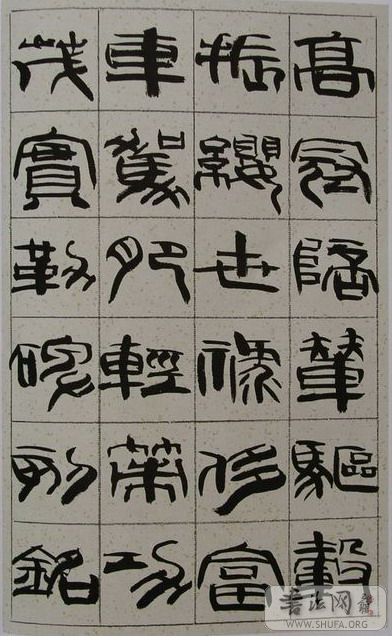 高冠陪輦驅轂
振纓世祿侈富
車駕肥輕策功
茂實勒碑刻銘
書法网
WWW.SHUFA.ORG